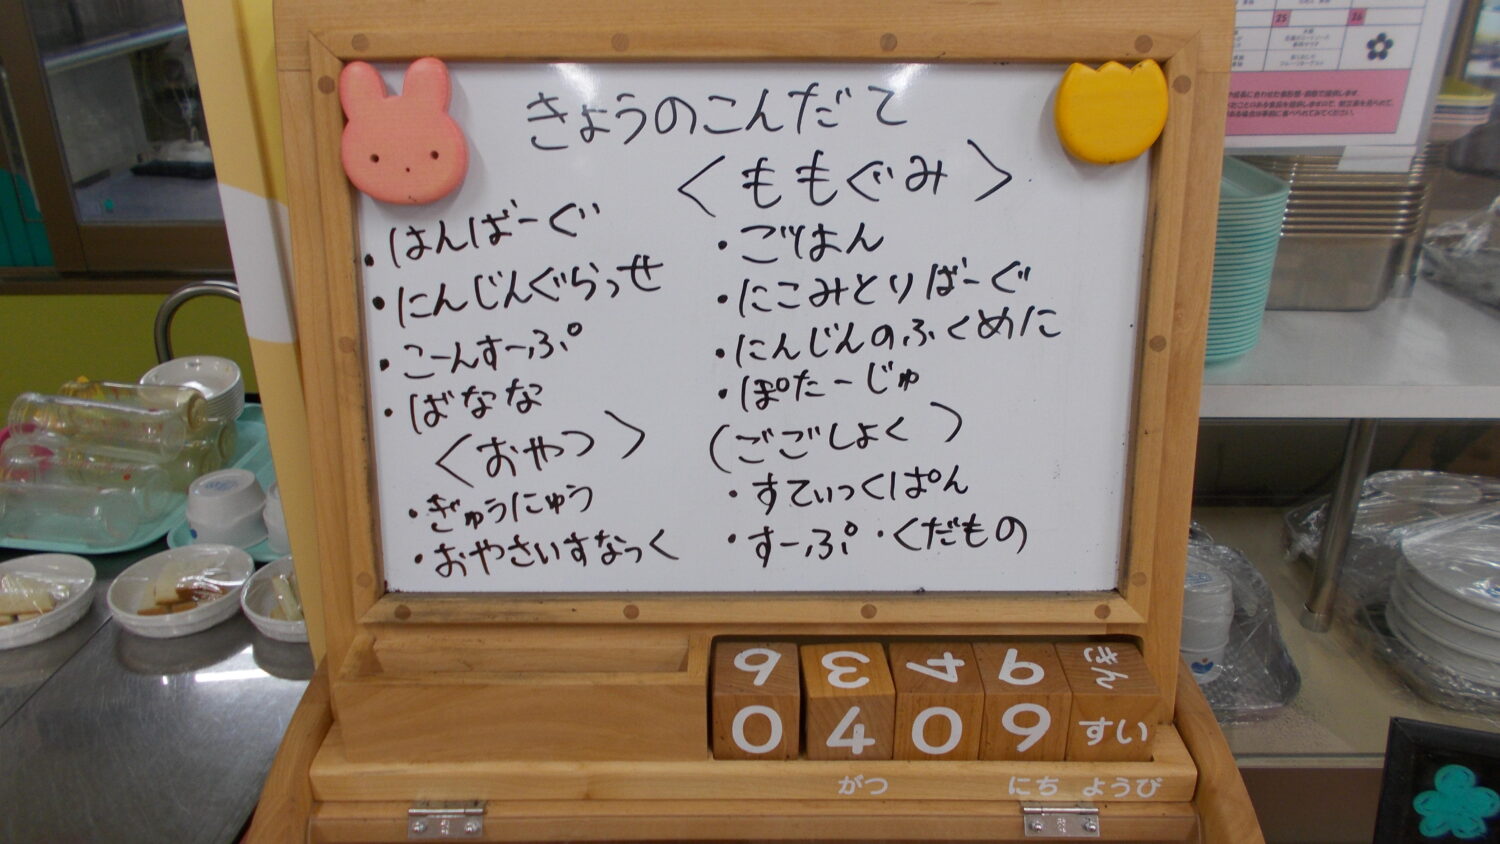 きょうのこんだて
・はんばーぐ
・にんじんぐらっせ
・こーんすーぷ
・ばなな
〈おやつ〉
・ぎゅうにゅう
・おやさいすなっく
〈ももぐみ〉
・ごはん
・にこみとりばーぐ
・にんじんのふくめに
・ぽたーじゅ
(ごごしょく)
・すてぃっくぱん
・すーぷ・くだもの
6 3 4 9 きん
0 4 0 9 すい
がつ にち ようび
25 26